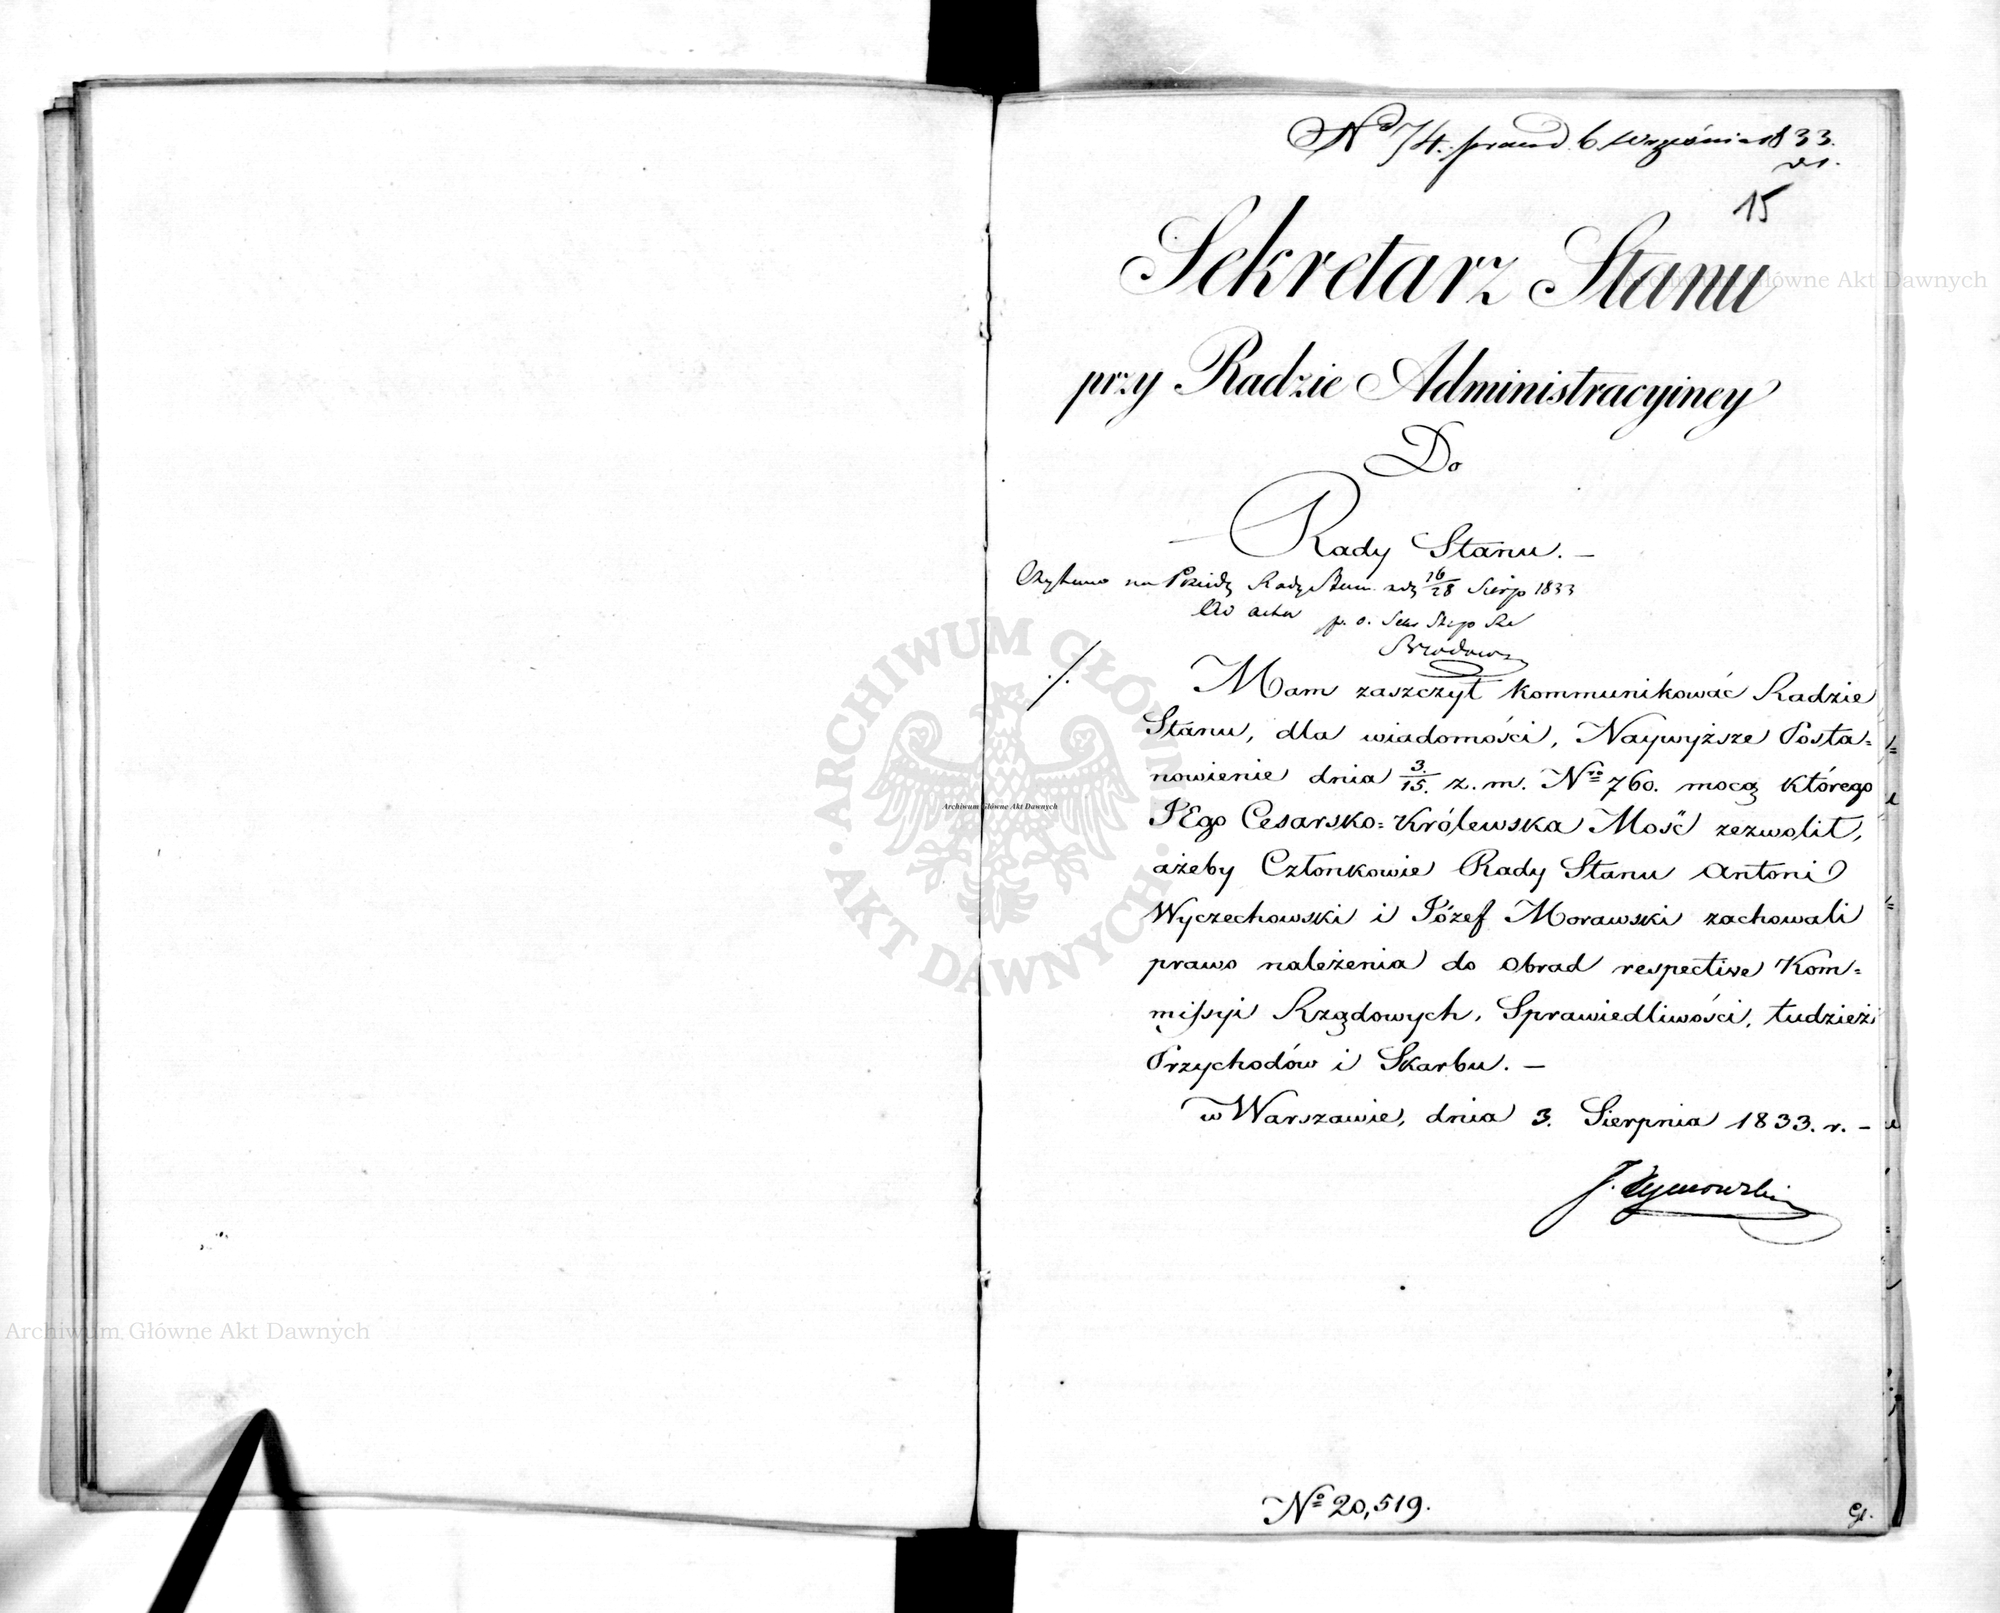 Nº 74. 6 Września 1833.
15
Sekretarz Stanu
przy Radzie Administracyiney
Do
Rady Stanu. —
Czytano na Rady Stanu 16/28 Sierp 1833
Ad acta p. o. Sekr
./.
Mam zaszczyt kommunikować Radzie
Stanu, dla wiadomości, Naywyższe Posta=
nowienie dnia 3/15. z. m. Nro 760. mocą którego
JEgo Cesarsko=Królewska Mość zezwolił,
ażeby Członkowie Rady Stanu Antoni
Wyczechowski i Józef Morawski zachowali
prawo należenia do obrad respective Kom=
missyi Rządowych, Sprawiedliwości, tudzież
Przychodów i Skarbu. —
w Warszawie, dnia 3. Sierpnia 1833. r. —
J. Tymowski
Nº 20,519.
Archiwum Główne Akt Dawnych
ARCHIWUM GŁÓWNE
AKT DAWNYCH
Archiwum Główne Akt Dawnych
Archiwum Główne Akt Dawnych